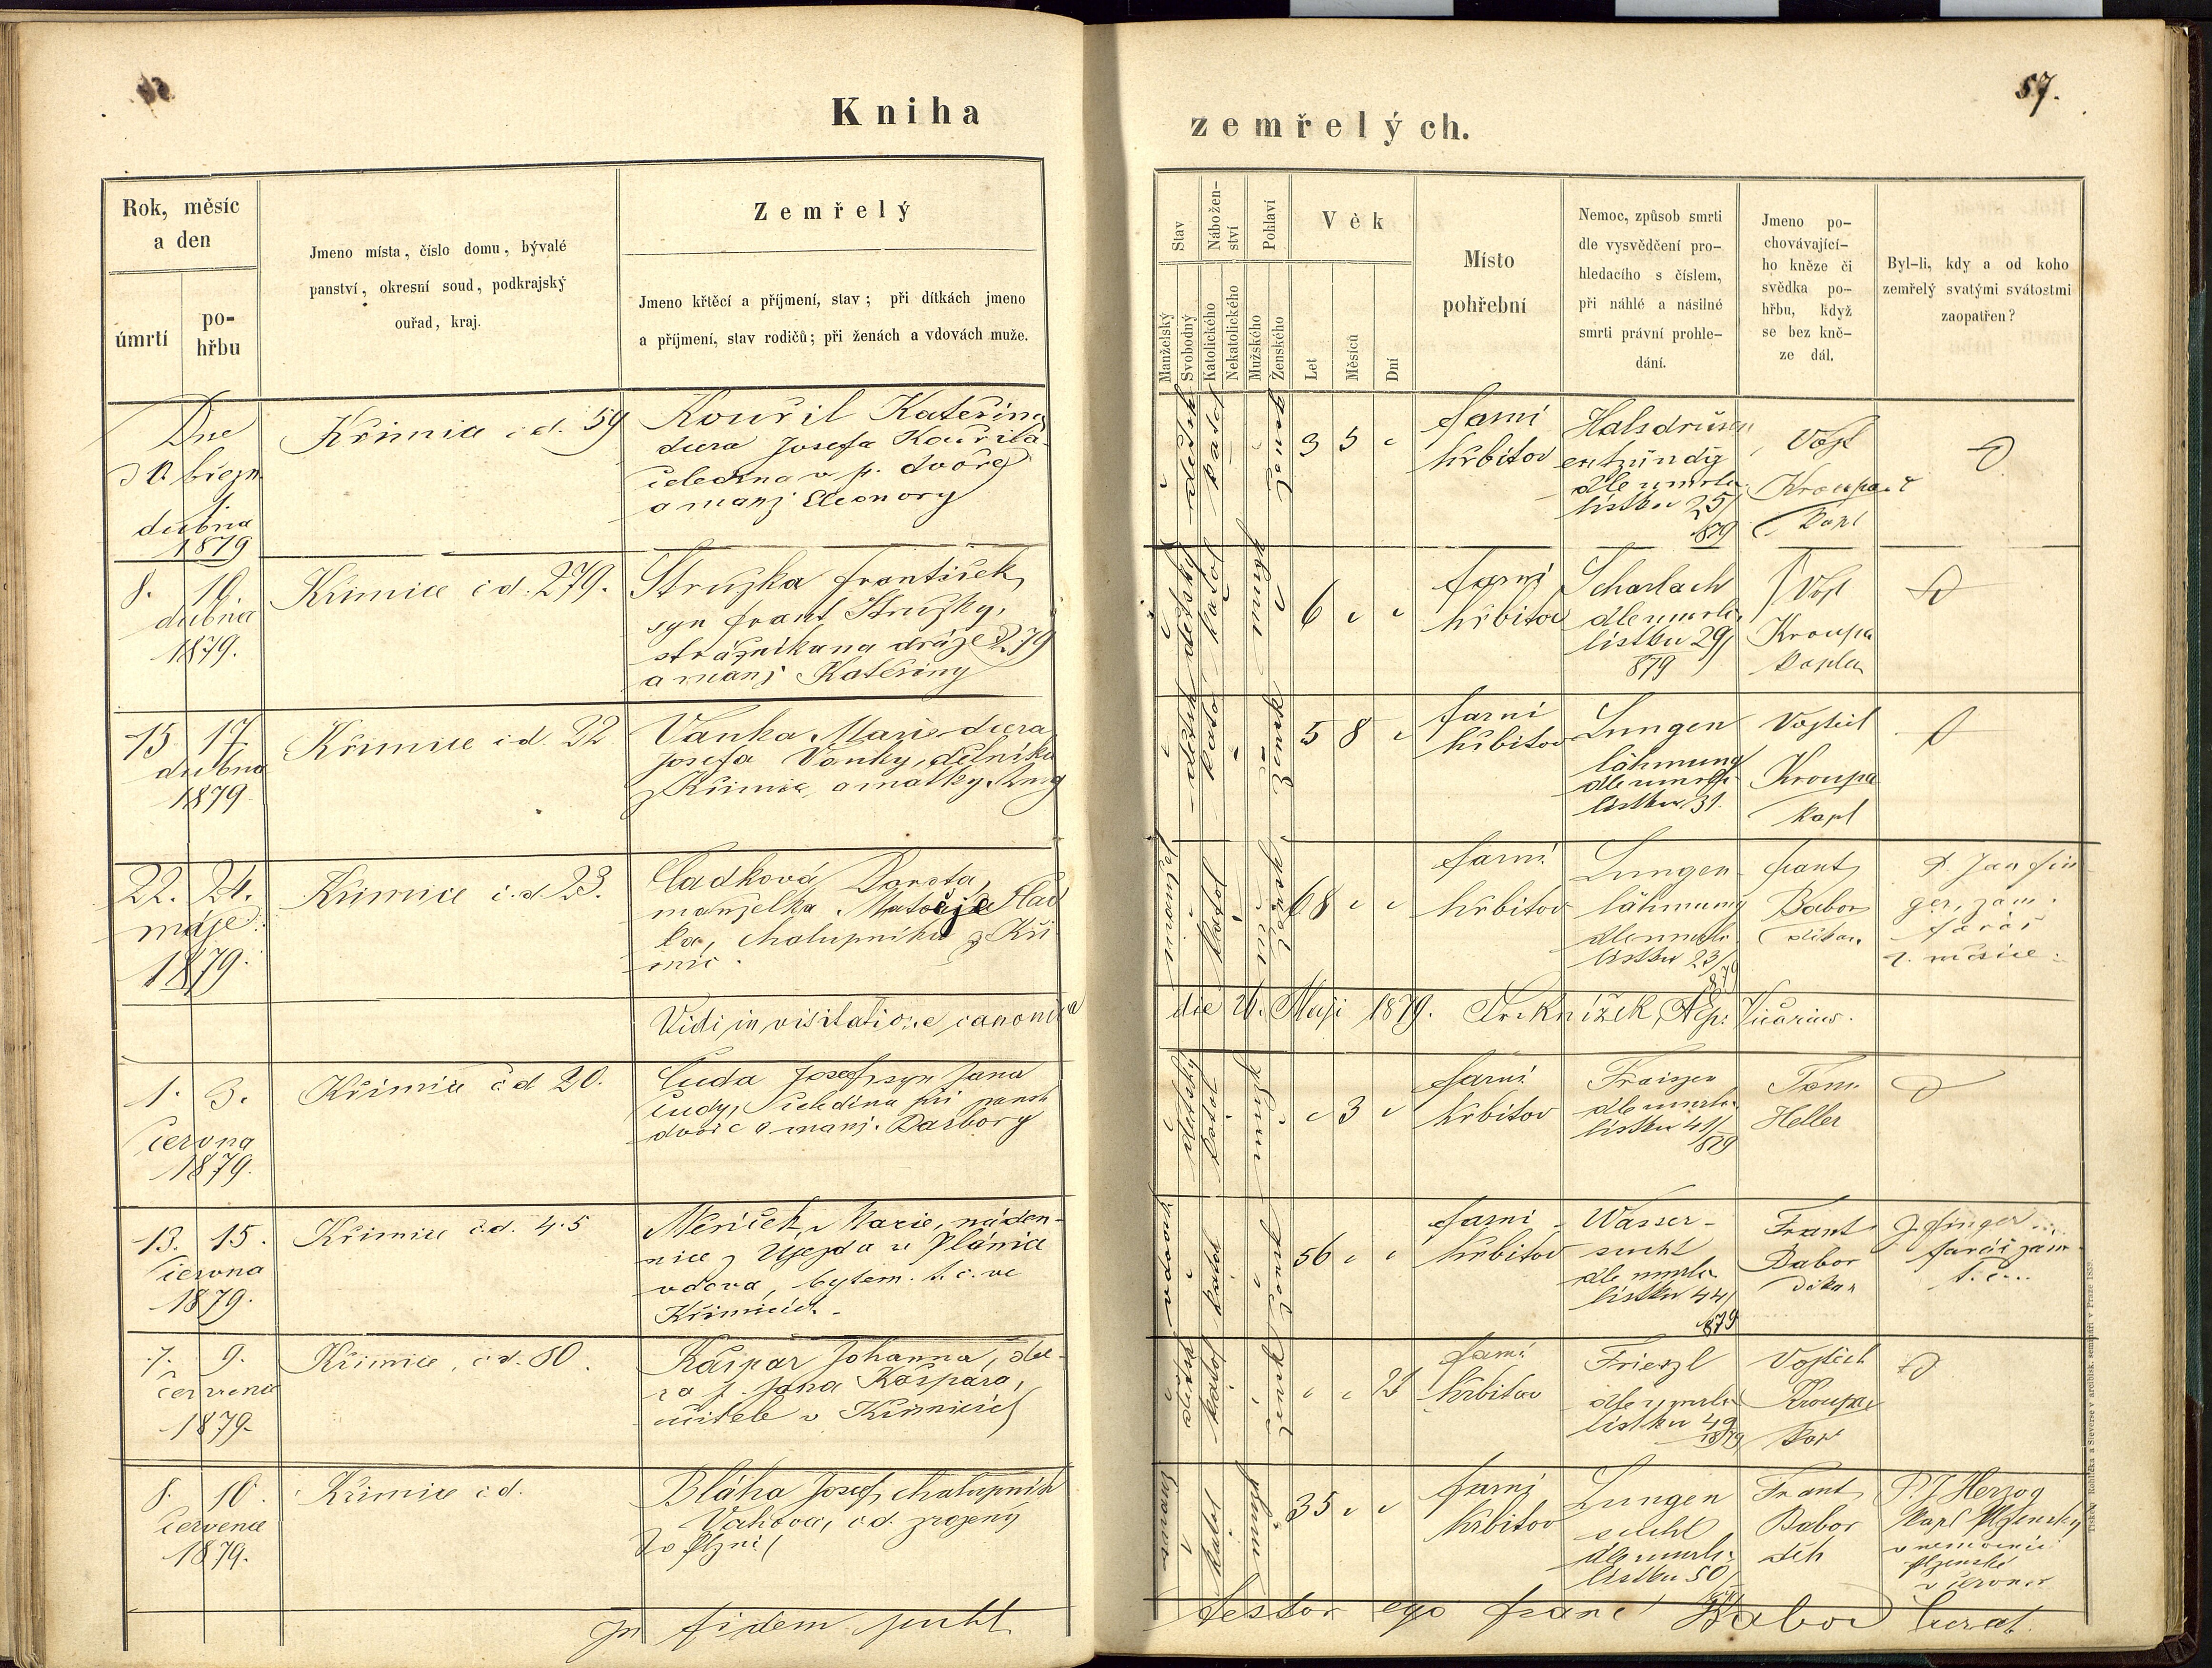 57.
Kniha
zemřelých.
Rok, měsíc
a den
úmrtí
po-
hřbu
Jmeno místa, číslo domu, bývalé
panství, okresní soud, podkrajský
ouřad, kraj.
Zemřelý
Jmeno křtěcí a příjmení, stav; při dítkách jmeno
a příjmení, stav rodičů; při ženách a vdovách muže.
Stav
Manželský
Svobodný
Nábožen-
ství
Katolického
Nekatolického
Pohlaví
Mužského
Ženského
Věk
Let
Měsíců
Dní
Místo
pohřební
Nemoc, způsob smrti
dle vysvědčení pro-
hledacího s číslem,
při náhlé a násilné
smrti právní prohle-
dání.
Jmeno po-
chovávající-
ho kněze či
svědka po-
hřbu, když
se bez kně-
ze dál.
Byl-li, kdy a od koho
zemřelý svatými svátostmi
zaopatřen?
Dne
březn
dubna
1879
Křimice č d. 59
Kouřil Kateřina
dcera Josefa Kouřila
čeledína v p. dvoře
a manž Eleonory
3 5
farní
hřbitov
Halsdrüsen
entzündg
dle umrlč.
lístku 25/
879
Vojt
Kroupa
Kapl
8. 10.
dubna
1879.
Křimice č d. 279.
Stružka František,
syn Frant Stružky,
strážníka na dráze 279
a manž Kateřiny
6
farní
hřbitov
Scharlach
dle umrlč.
lístku 29/
879
Vojt
Kroupa
Kaplan
15 17.
dubna
1879
Křimice č d. 22
Vaňka Marie dcera
Josefa Vaňky, dělníka
z Křimic, a matky Anny
5 8
farní
hřbitov
Lungen
lähmung
dle umrlč.
lístku 31.
Vojtěch
Kroupa
Kapl
22. 24.
máje
1879.
Křimice č. d. 23.
Hladková Dorota,
manželka Matěje Hlad
ka, chalupníka z Kři
mic.
68
farní
hřbitov
Lungen-
lähmung
dle umrlč.
lístku 23/
879
Frant
Babor
děkan
P. Jan Fin
ger, zám.
farář
t. měsíce.
Vidi in visitatione canonica
die 26. Maji 1879. Fr. Knížek, Ep. Vicarius.
1. 3.
června
1879.
Křimice č d 20.
Čuda Josef, syn Jana
Čudy, čeledína při pansk
dvoře a manž. Barbory
3
farní
hřbitov
Fraisen
dle umrlč.
lístku 41/
879
Tom.
Heller
13. 15.
června
1879.
Křimice č.d. 45
Marie, náden-
nice z Újezda u Plánice
vdova, bytem t. č. ve
Křimicích.
56
farní
hřbitov
Wasser-
sucht
dle umrlč
lístku 44/
879
Frant
Babor
děkan
J. Finger
farář zám.
t. č...
7. 9.
července
1879.
Křimice, č. d. 80.
Kašpar Johanna, dce-
ra p. Jana Kašpara,
učitele v Křimicích
farní
hřbitov
Frierzl
dle umrlč
lístku 49
1879
Vojtěch
Kroupa
Kap
8. 10.
července
1879.
Křimice č d.
Bláha Josef, chalupník
Vochova, č d. zrozený
v Plzni
35
farní
hřbitov
Lungen
sucht
dle umrlč.
lístku 50/
Frant
Babor
děk
P. J Herzog
Kapl Plzenský
v nemocnici
plzenské
v červenci
In fidem
testor ego Franc Babor Curat.
Tiskem Rohlíčka a Sieverse v arcibisk. semináři v Praze 1859.